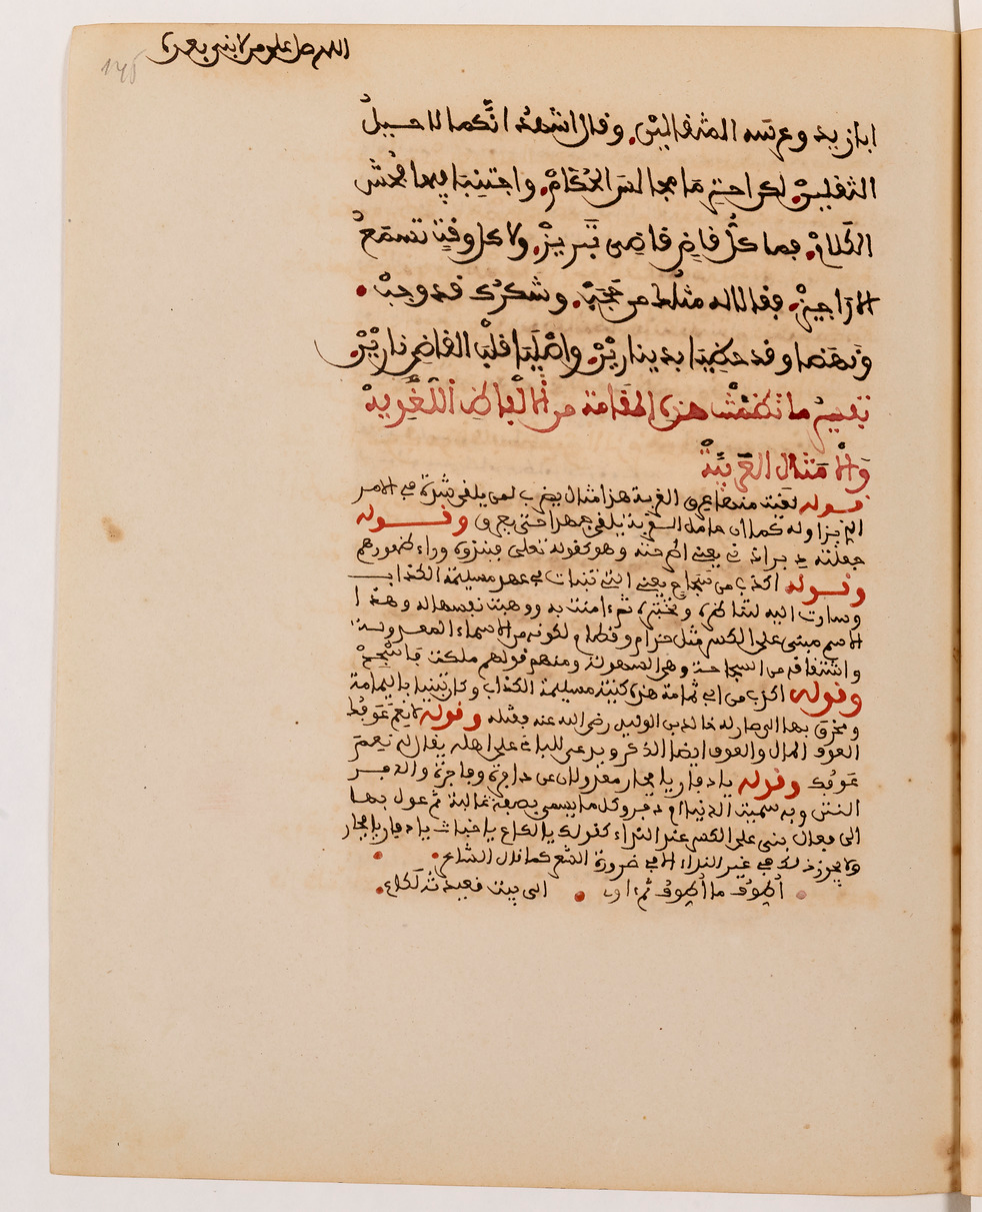 اللهم صل على من لا نبي بعده
145
ابا زيد وعرسه المثقالين. وقال اشهد انكما لاحيل
الثقلين. لكن احترما مجالس الحكام. واجتنبا فيها فحش
الكلام. فما كل قاض قاضي تبريز. ولا كل وقت تسمع
الاراجيز. فقالا له مثلك من حجب. وشكرك قد وجب.
ونهضا وقد حظيا بدينارين. واصليا قلب القاضي نارين.
تفسير ما تضمنت هذه المقامة من الالفاظ اللغوية
والامثال العربية
قوله لقيت منها عرق القربة هذا مثال يضرب لمن يلقى شدة في الامر
الذي يزاوله كما ان حامل القربة يلقى جهدا حتى يعرق وقوله
جعلته دبر اذني يعني اطرحته وهو كقوله تعلى فنبذوه وراء ظهورهم
وقوله اكذب من سجاح يعني التي تنبات في عهد مسيلمة الكذاب
وسارت اليه لتناظره وتختبره ثم ءامنت به ووهبت نفسها له وهذا ا
لاسم مبني على الكسر مثل حذام وقطام لكونه من الاسماء المعدولة
واشتقاقه من السجاحة وهي السهولة ومنهم قولهم ملكت فاسجح
وقوله اكذب من ابي ثمامة هذه كنية مسيلمة الكذاب وكان تنبا باليمامة
ومخرق بها الى ان صار له خالد بن الوليد رضي الله عنه فقتله وقوله لا نعم عوفك
العوف الحال والعوف ايضا الذكر ويدعى للباني على اهله يقال له نعم
عوفك وقوله يا دفار يا فجار معدولان عن دافرة وفاجرة والدفر
النتن وبه سميت الدنيا ام دفر وكل ما يسمى بصفة غالبة ثم عدل بها
الى فعال بني على الكسر عند النداء كقولك يا لكاع يا خباث يا دفار يا فجار
ولا يجوز ذلك في غير النداء الا في ضرورة الشعر كما قال الشاعر
اطوف ما اطوف ثم ءاوي الى بيت قعيدته لكاع